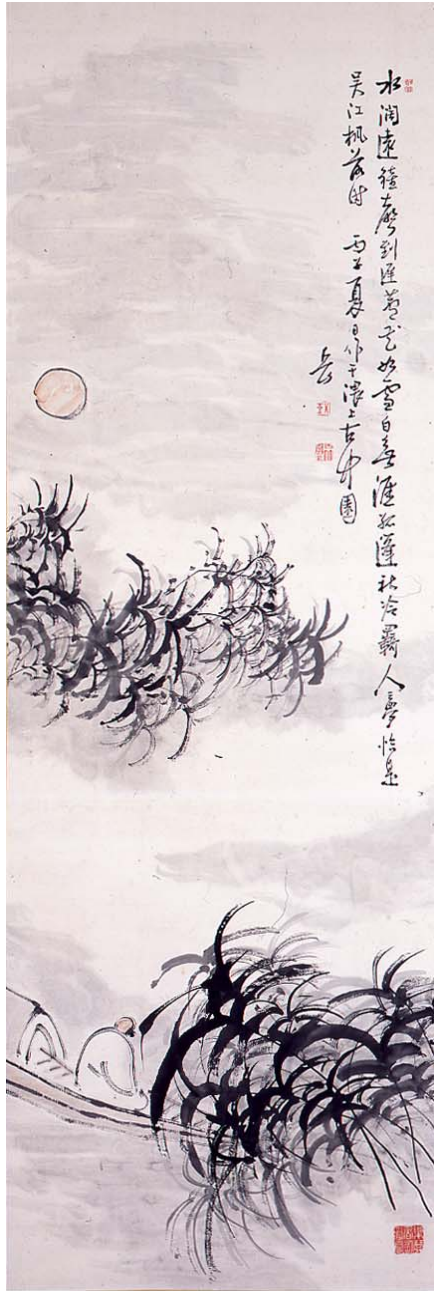 水阔遠鐘聲到遲蘆花如雪白無涯孤篷秋冷羈人夢恰是
吳江楓落时 丙子夏日作于上古園
岳